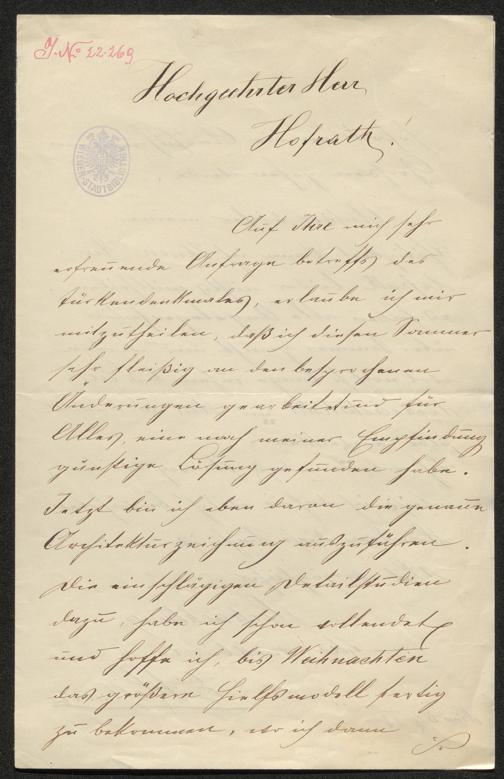 J. No 22.269
Hochgeehrter Herr
Hofrath!
WIENER STADTBIBLIOTHEK
Auf Ihre mich sehr
erfreuende Anfrage betreffs des
Türkendenkmales, erlaube ich mir
mitzutheilen, daß ich diesen Sommer
sehr fleißig an den besprochenen
Änderungen gearbeitet und für
Alles, eine nach meiner Empfindung
günstige Lösung gefunden habe.
Jetzt bin ich eben daran die genaue
Architekturzeichnung auszuführen.
Die einschlägigen Detailstudien
dazu, habe ich schon vollendet
und hoffe ich, bis Weihnachten
das größere Hielfsmodell fertig
zu bekommen, wo ich dann